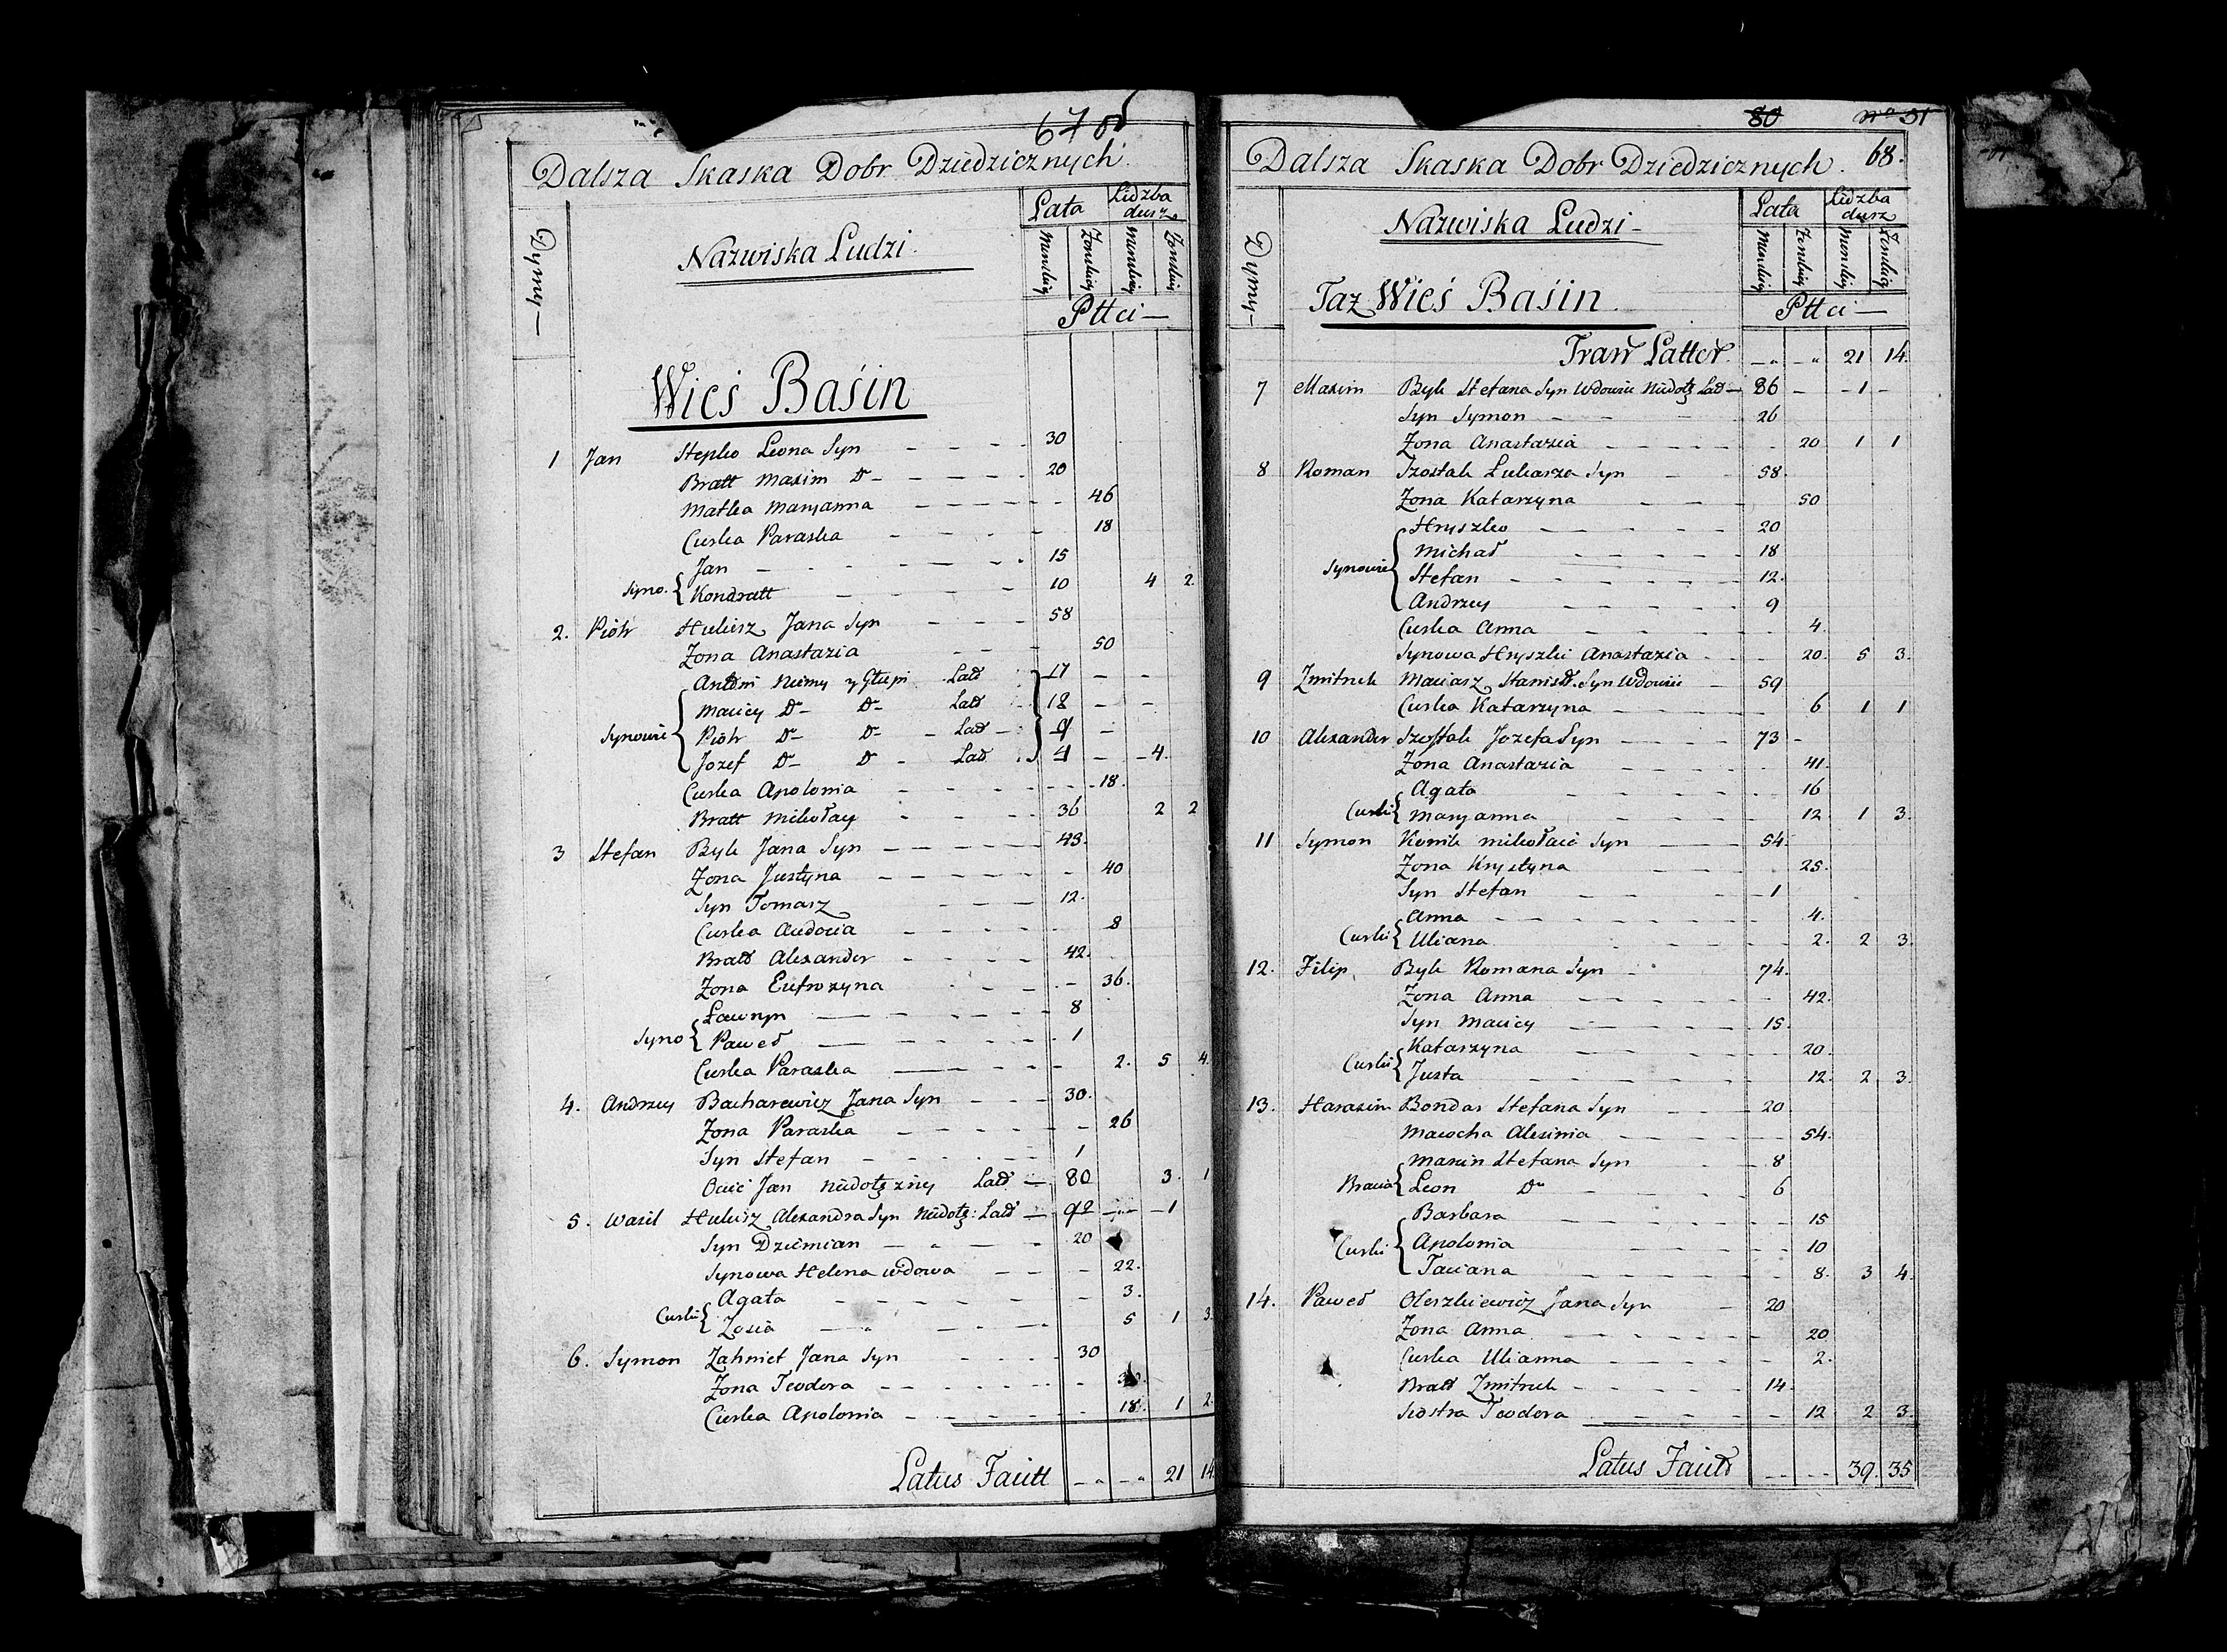 67 od
Dalsza Skaska Dobr Dziedzicznych
Dymy—
Nazwiska Ludzi
Lata
Lidzba dusz
Menskiey
Zenskiey
Menskiey
Zenskiey
Płłci—
Wieś Baśin
1 Jan Stepko Leona Syn 30
Bratt Maxim Do 20
Matka Maryanna 46
Curka Paraska 18
Syno. { Jan 15
Kondratt 10 4 2.
2. Piotr Hukisz Jana Syn 58
Zona Anastazia 50
Synowie { Antoni Niemy y Głupi Latt 17
Maciey Do Do Latt 18
Piotr Do Do Latt 9
Jozef Do Do Latt 4 4.
Curka Apolonia 18.
Bratt Mikołay 36 2 2
3 Stefan Byk Jana Syn 43.
Zona Justyna 40
Syn Tomasz 12.
Curka Audocia 8
Bratt Alexander 42.
Zona Eufrozyna 36.
Syno { Ławryn 8
Paweł 1
Curka Paraska 2. 5 4.
4. Andrzey Bacharewicz Jana Syn 30.
Zona Paraska 26
Syn Stefan 1
Ociec Jan Niedołężny Latt 80 3. 1
5. Wasil Hukisz Alexandra Syn Niedołę: Latt 92 1
Syn Dziemian 20
Synowa Helena wdowa 22.
Curki { Agata 3.
Zosia 5 1 3.
6. Symon Zahniet Jana Syn 30
Zona Teodora
Curka Apolonia 18. 1 2.
Latus Faciłł 21 14.
80 No 51
Dalsza Skaska Dobr Dziedzicznych. 68.
Dymy—
Nazwiska Ludzi—
Lata
Lidzba dusz
Menskiey
Zenskiey
Menskiey
Zenskiey
Płłci—
Taz Wieś Baśin
Tran Latter 21 14.
7 Maxim Byk Stefana Syn Wdowiec Niedołę Latt 86 1
Syn Symon 26
Zona Anastazia 20 1 1
8 Roman Szostak Łukasza Syn 58.
Zona Katarzyna 50
Synowie { Hryszko 20
Michał 18
Stefan 12.
Andrzey 9
Curka Anna 4.
Synowa Hryszki Anastazia 20. 5 3.
9 Zmitruk Maciasz Stanisł. Syn Wdowiec 59
Curka Katarzyna 6 1 1
10 Alexander Szostak Jozefa Syn 73
Zona Anastazia 41.
Curki { Agata 16
Maryanna 12 1 3.
11 Symon Komik Mikołaia Syn 54.
Zona Krystyna 25.
Syn Stefan 1
Curki { Anna 4.
Uliana 2. 2 3.
12. Filip Byk Romana Syn 74.
Zona Anna 42.
Syn Maciey 15.
Curki { Katarzyna 20.
Justa 12. 2 3.
13. Harasim Bondar Stefana Syn 20
Macocha Alexinia 54.
Bracia { Maxim Stefana Syn 8
Leon Do 6
Curki { Barbara 15
Apolonia 10
Taciana 8. 3 4.
14. Paweł Oleszkiewicz Jana Syn 20
Zona Anna 20
Curka Ulianna 2.
Bratt Zmitruk 14.
Siostra Teodora 12 2 3.
Latus Faciłł 39. 35